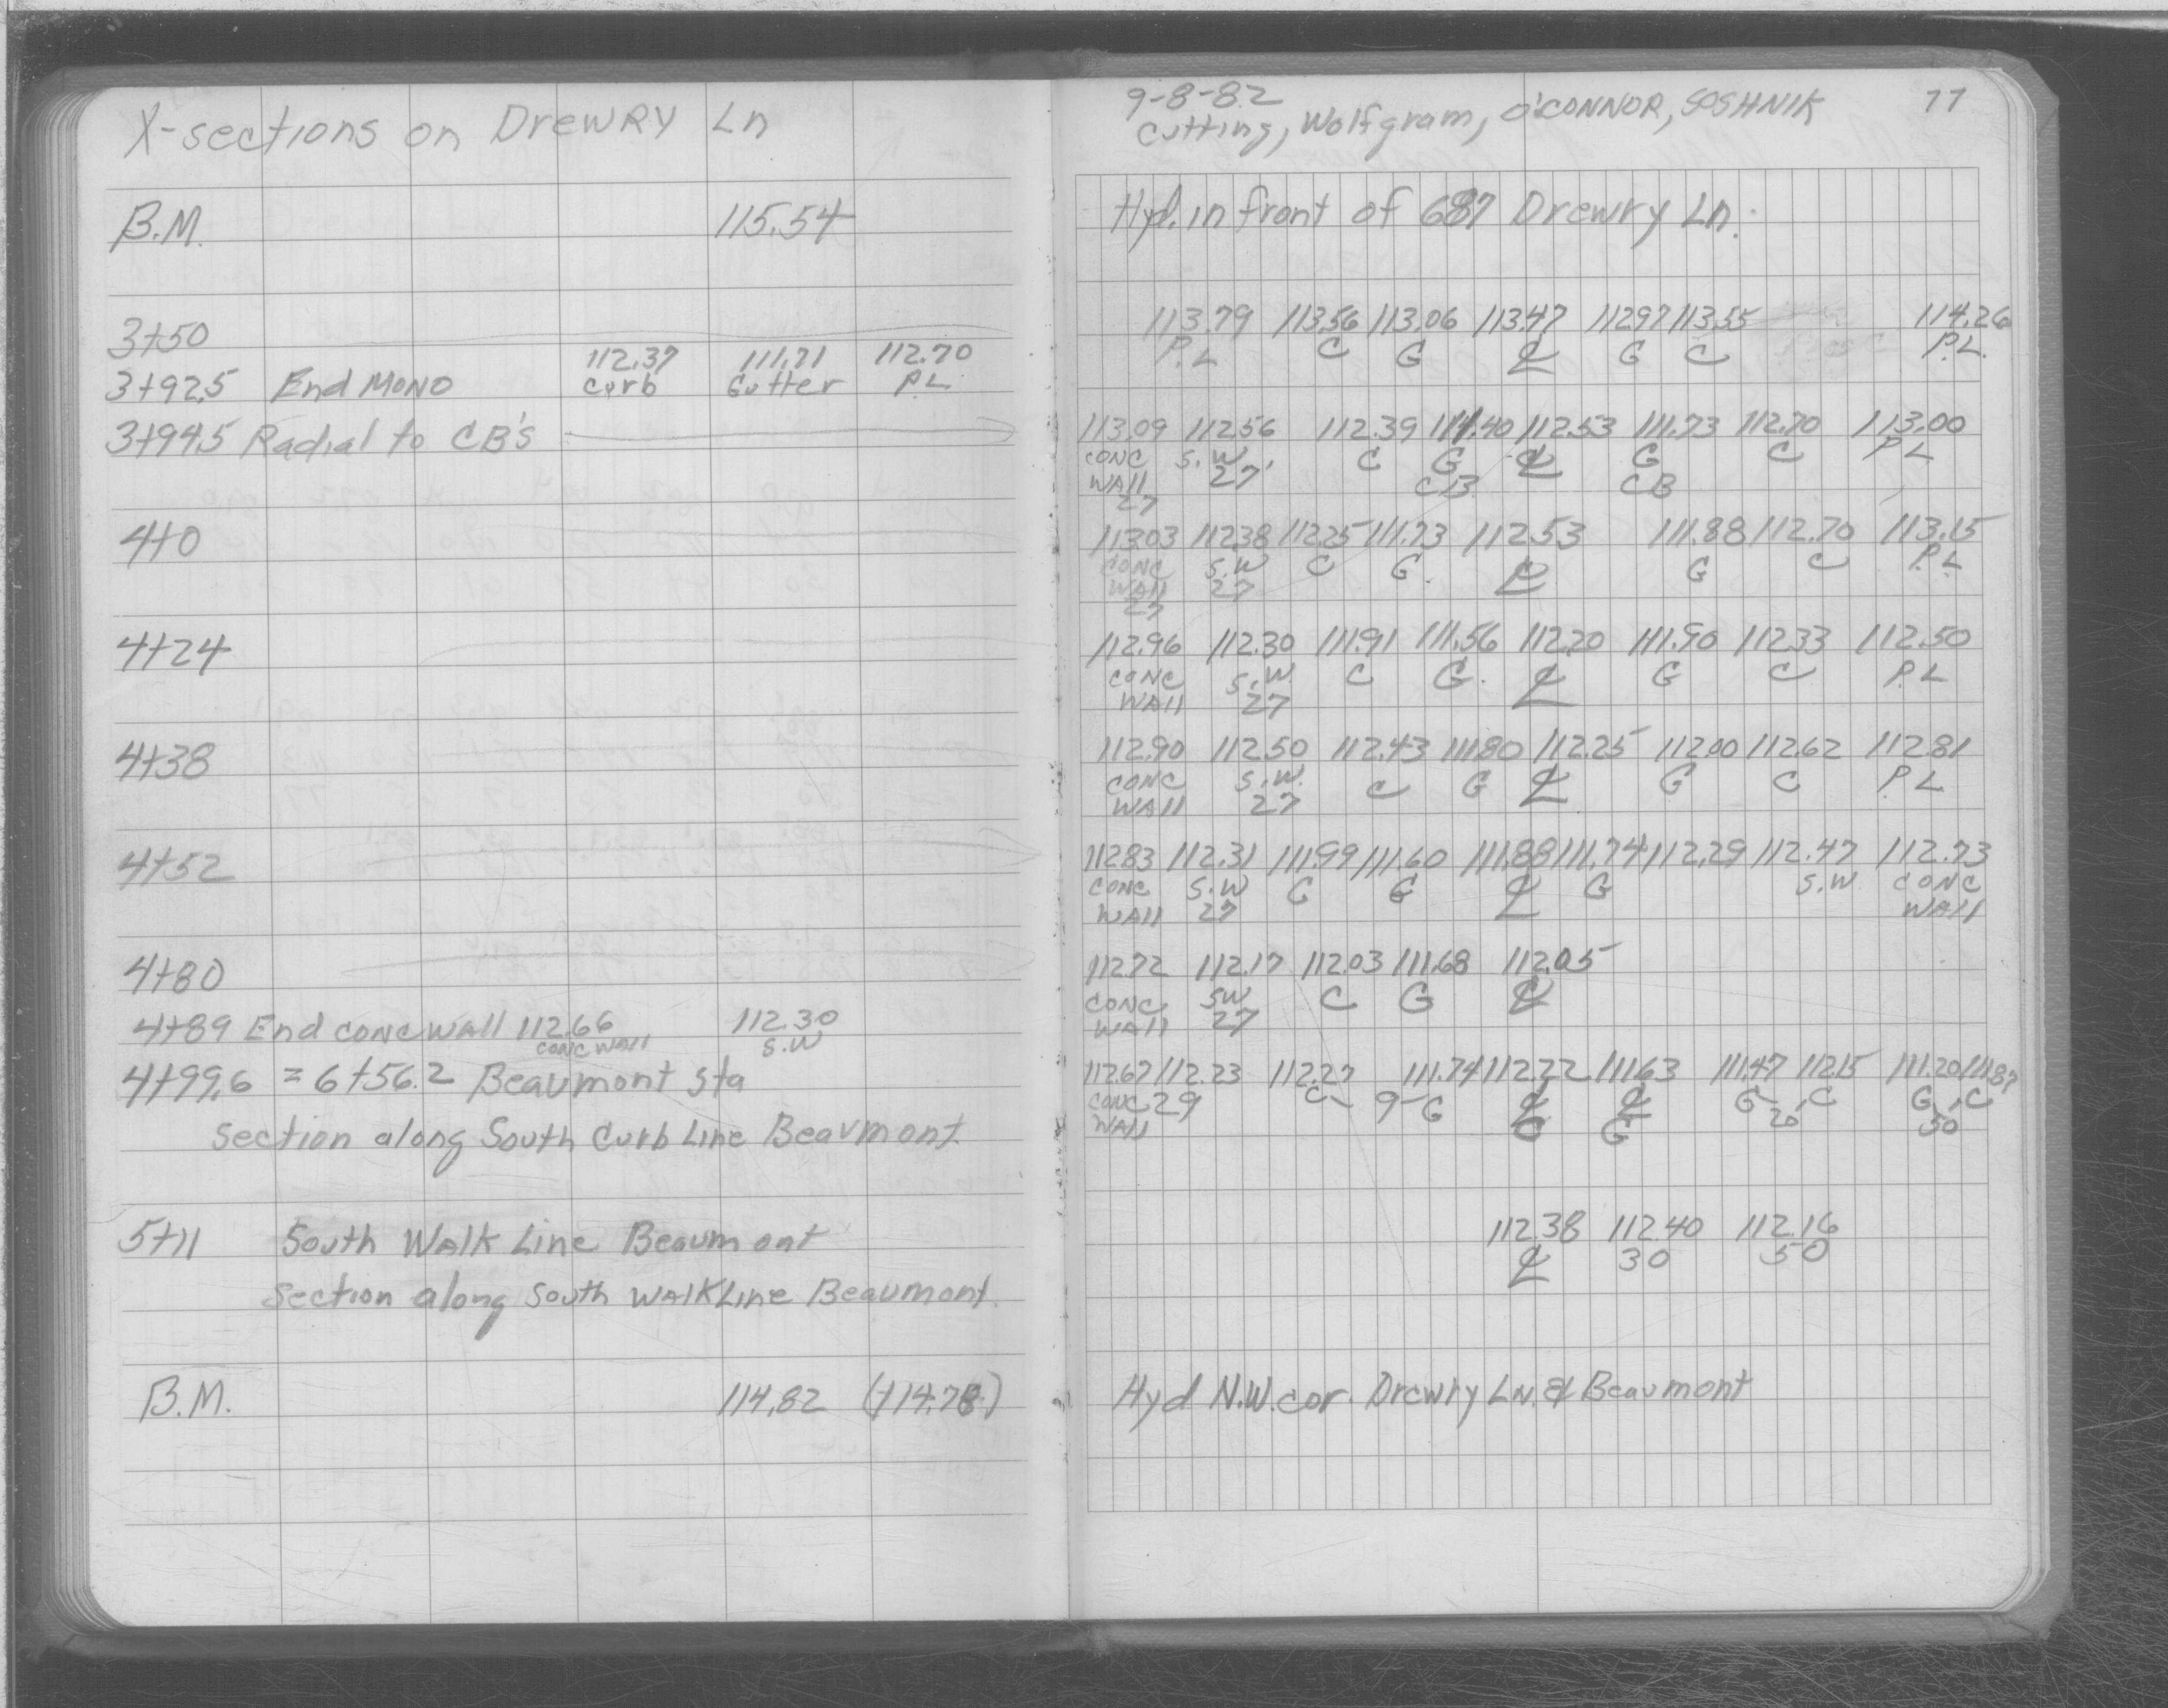 X-sections on Drewry Ln
B.M. 115.54
3+50
112.37 111.71 112.70
3+92.5 End Mono Curb Gutter P.L.
3+94.5 Radial to CB's
4+0
4+24
4+38
4+52
4+80
4+89 End conc wall 112.66 112.30
conc wall S.W
4+99.6 = 6+56.2 Beaumont Sta
Section along South Curb Line Beaumont
5+11 South Walk Line Beaumont
Section along South Walk Line Beaumont.
B.M. 114.82 (114.78)
9-8-82
Cutting, Wolfgram, O'CONNOR, SOSHNIK 77
Hyd. in front of 687 Drewry Ln.
113.79 113.56 113.06 113.47 112.97 113.55 114.26
P.L C G ℄ G C P.L.
113.09 112.56 112.39 111.40 112.53 111.73 112.70 113.00
CONC S.W. C G ℄ G C P.L
WALL 27' CB CB
27
113.03 112.38 112.25 111.73 112.53 111.88 112.70 113.15
CONC S.W C G. ℄ G C P.L
WALL 27
27
112.96 112.30 111.91 111.56 112.20 111.90 112.33 112.50
CONC S.W. C G. ℄ G C P.L
WALL 27
112.90 112.50 112.43 111.80 112.25 112.00 112.62 112.81
CONC S.W. C G ℄ G C P.L
WALL 27
112.83 112.31 111.99 111.60 111.88 111.74 112.29 112.47 112.73
CONC S.W C G ℄ G S.W CONC
WALL 27 WALL
112.72 112.17 112.03 111.68 112.05
CONC SW C G ℄
WALL 27
112.67 112.23 112.27 111.74 112.22 111.63 111.47 112.15 111.20 111.87
CONC 29 C- 9-G ℄ ℄ G C G C
WALL C G 20' 50'
112.38 112.40 112.16
℄ 30 50
Hyd N.W. cor. Drewry Ln. & Beaumont